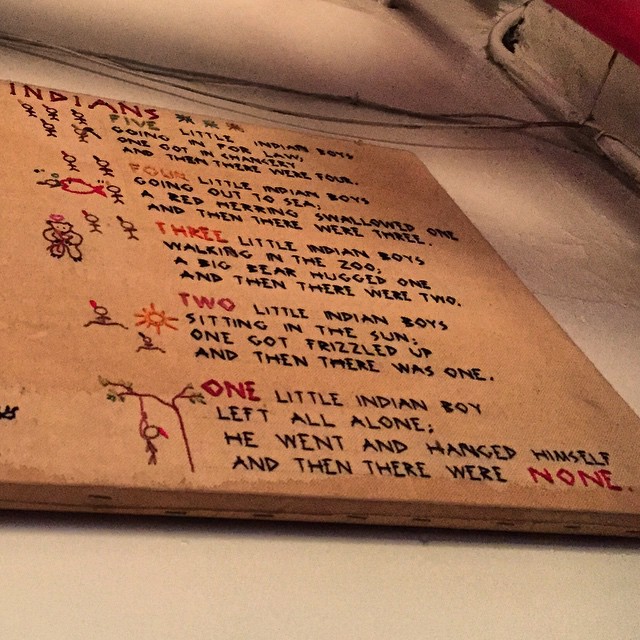 INDIANS
FIVE LITTLE INDIAN BOYS
GOING IN FOR LAW;
ONE GOT IN CHANCERY
AND THEN THERE WERE FOUR.
FOUR LITTLE INDIAN BOYS
GOING OUT TO SEA;
A RED HERRING SWALLOWED ONE
AND THEN THERE WERE THREE.
THREE LITTLE INDIAN BOYS
WALKING IN THE ZOO;
A BIG BEAR HUGGED ONE
AND THEN THERE WERE TWO.
TWO LITTLE INDIAN BOYS
SITTING IN THE SUN;
ONE GOT FRIZZLED UP
AND THEN THERE WAS ONE.
ONE LITTLE INDIAN BOY
LEFT ALL ALONE;
HE WENT AND HANGED HIMSELF
AND THEN THERE WERE NONE.